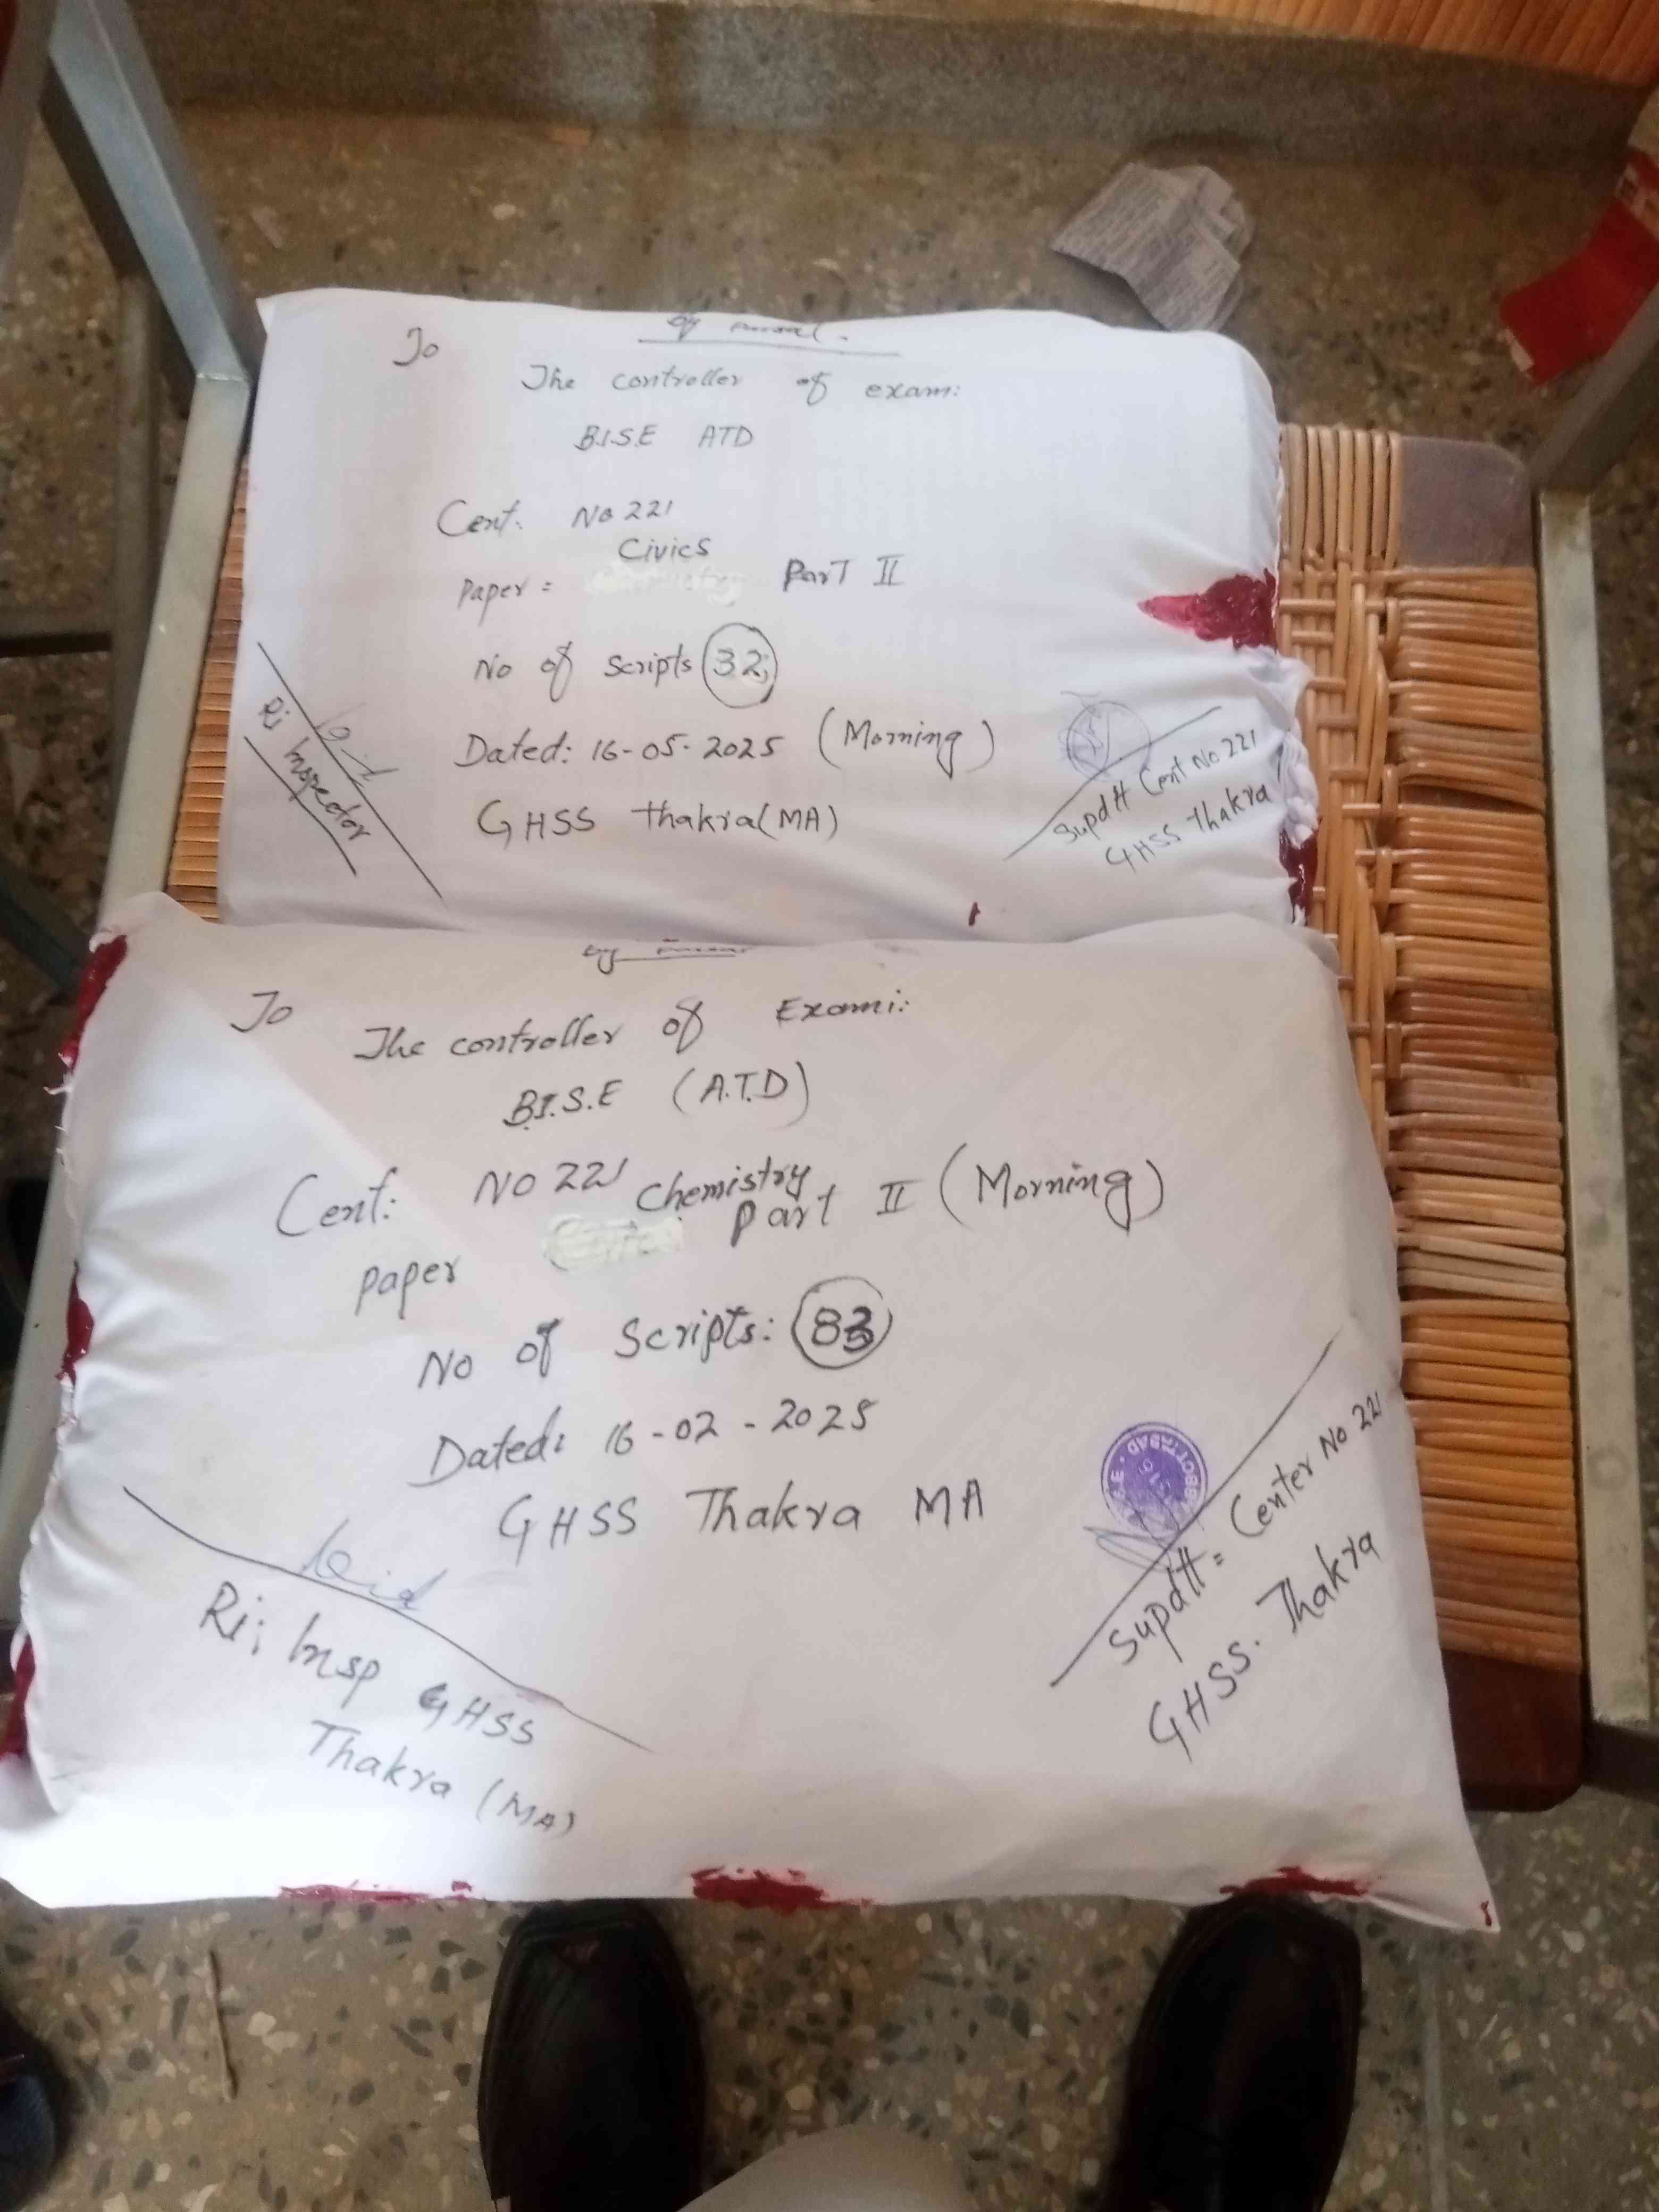 To
The controller of exam:
B.I.S.E ATD
Cent: No 221
Civics
Paper = Part II
No of scripts 32
Dated: 16-05-2025 (Morning)
GHSS Thakra (MA)
Ri Inspector
Supdtt Cent No 221
GHSS Thakra
To
The controller of Exami:
B.I.S.E (A.T.D)
Cent: No 221 Chemistry
paper Part II (Morning)
No of Scripts: 83
Dated: 16-02-2025
GHSS Thakra MA
Ri; Insp GHSS
Thakra (MA)
Supdtt = Center No 221
GHSS. Thakra